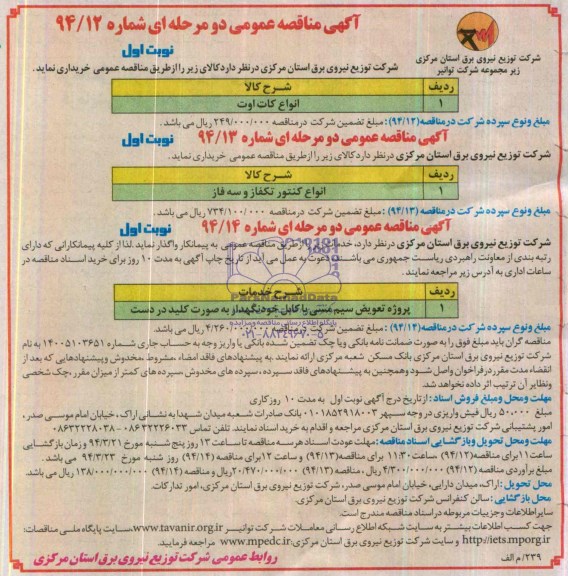 آگهی مناقصه عمومی دو مرحله ای شماره ۹۴/۱۲
نوبت اول
شرکت توزیع نیروی برق استان مرکزی
زیر مجموعه شرکت توانیر
شرکت توزیع نیروی برق استان مرکزی درنظر دارد کالای زیر را از طریق مناقصه عمومی خریداری نماید.
ردیف شرح کالا
۱ انواع کات اوت
مبلغ و نوع سپرده شرکت در مناقصه (۹۴/۱۲): مبلغ تضمین شرکت در مناقصه ۲۴۹/۰۰۰/۰۰۰ ریال می باشد.
آگهی مناقصه عمومی دو مرحله ای شماره ۹۴/۱۳ نوبت اول
شرکت توزیع نیروی برق استان مرکزی درنظر دارد کالای زیر را از طریق مناقصه عمومی خریداری نماید.
ردیف شرح کالا
۱ انواع کنتور تکفاز و سه فاز
مبلغ و نوع سپرده شرکت در مناقصه (۹۴/۱۳): مبلغ تضمین شرکت در مناقصه ۷۳۴/۱۰۰/۰۰۰ ریال می باشد.
آگهی مناقصه عمومی دو مرحله ای شماره ۹۴/۱۴ نوبت اول
شرکت توزیع نیروی برق استان مرکزی در نظر دارد، خدمات زیر را از طریق مناقصه عمومی به پیمانکار واگذار نماید. لذا از کلیه پیمانکارانی که دارای
رتبه بندی از معاونت راهبردی ریاست جمهوری می باشند دعوت به عمل می آید از تاریخ چاپ آگهی به مدت ۱۰ روز برای خرید اسناد مناقصه در
ساعات اداری به آدرس زیر مراجعه نمایند.
ردیف شرح خدمات
۱ پروژه تعویض سیم مسی با کابل خودنگهدار به صورت کلید در دست
مبلغ و نوع سپرده شرکت در مناقصه (۹۳/۱۴): مبلغ تضمین شرکت در مناقصه ۴/۲۶۰/۰۰۰/۰۰۰ ریال می باشد.
مناقصه گران باید مبلغ فوق را به صورت ضمانت نامه بانکی و یا چک تضمین شده بانکی یا واریز وجه به حساب جاری شماره ۱۴۰۰۵۱۰۳۶۵۱ به نام
شرکت توزیع نیروی برق استان مرکزی بانک مسکن شعبه مرکزی ارائه نمایند. به پیشنهادهای فاقد امضاء، مشروط، مخدوش و پیشنهادهایی که بعد از
انقضاء مدت مقرر در فراخوان واصل شود و همچنین به پیشنهادهای فاقد سپرده، سپرده های مخدوش، سپرده های کمتر از میزان مقرر، چک شخصی
و نظایر آن ترتیب اثر داده نخواهد شد.
مهلت و محل و مبلغ فروش اسناد: از تاریخ درج آگهی نوبت اول به مدت ۱۰ روز کاری
مبلغ ۵۰۰۰۰۰ ریال فیش واریزی در وجه سپهر ۰۱۰۱۸۵۲۹۱۸۰۰۳ بانک صادرات شعبه میدان شهدا به نشانی اراک، خیابان امام موسی صدر،
امور پشتیبانی شرکت توزیع نیروی برق استان مرکزی مراجعه و اقدام به خرید اسناد نمایند. تلفن تماس ۰۸۶۳۲۲۲۶۰۳۳ - ۰۸۶۳۲۲۲۸۰۳۸
مهلت و محل تحویل و بازگشایی اسناد مناقصه: مهلت عودت اسناد هر سه مناقصه تا ساعت ۱۳ روز پنج شنبه مورخ ۹۴/۳/۲۱ و زمان بازگشایی
ساعت ۱۱ برای مناقصه (۹۴/۱۲) ساعت ۱۱:۳۰ برای مناقصه (۹۴/۱۳) و ساعت ۱۲ برای مناقصه (۹۴/۱۴) روز شنبه مورخ ۹۴/۳/۲۳ می باشد.
مبلغ برآوردی مناقصه (۹۴/۱۲) ۴/۳۰۰/۰۰۰/۰۰۰ ریال، مناقصه (۹۴/۱۳) ۲۰/۴۷۰/۰۰۰/۰۰۰ ریال و مناقصه (۹۴/۱۴) ۱۳۸/۰۰۰/۰۰۰/۰۰۰ ریال می باشد.
محل تحویل: اراک، میدان دارایی، خیابان امام موسی صدر، شرکت توزیع نیروی برق استان مرکزی، امور تدارکات.
محل بازگشایی: سالن کنفرانس شرکت توزیع نیروی برق استان مرکزی.
سایر اطلاعات و جزییات مربوطه در اسناد مناقصه مندرج است.
جهت کسب اطلاعات بیشتر به سایت شبکه اطلاع رسانی معاملات شرکت توانیر www.tavanir.org.ir، سایت پایگاه ملی مناقصات:
http://iets.mporg.ir و سایت شرکت توزیع نیروی برق استان مرکزی: www.mpedc.ir مراجعه فرمایید.
۲۳۹/م الف
روابط عمومی شرکت توزیع نیروی برق استان مرکزی
ParsNamadData
پایگاه اطلاع رسانی مناقصه و مزایده